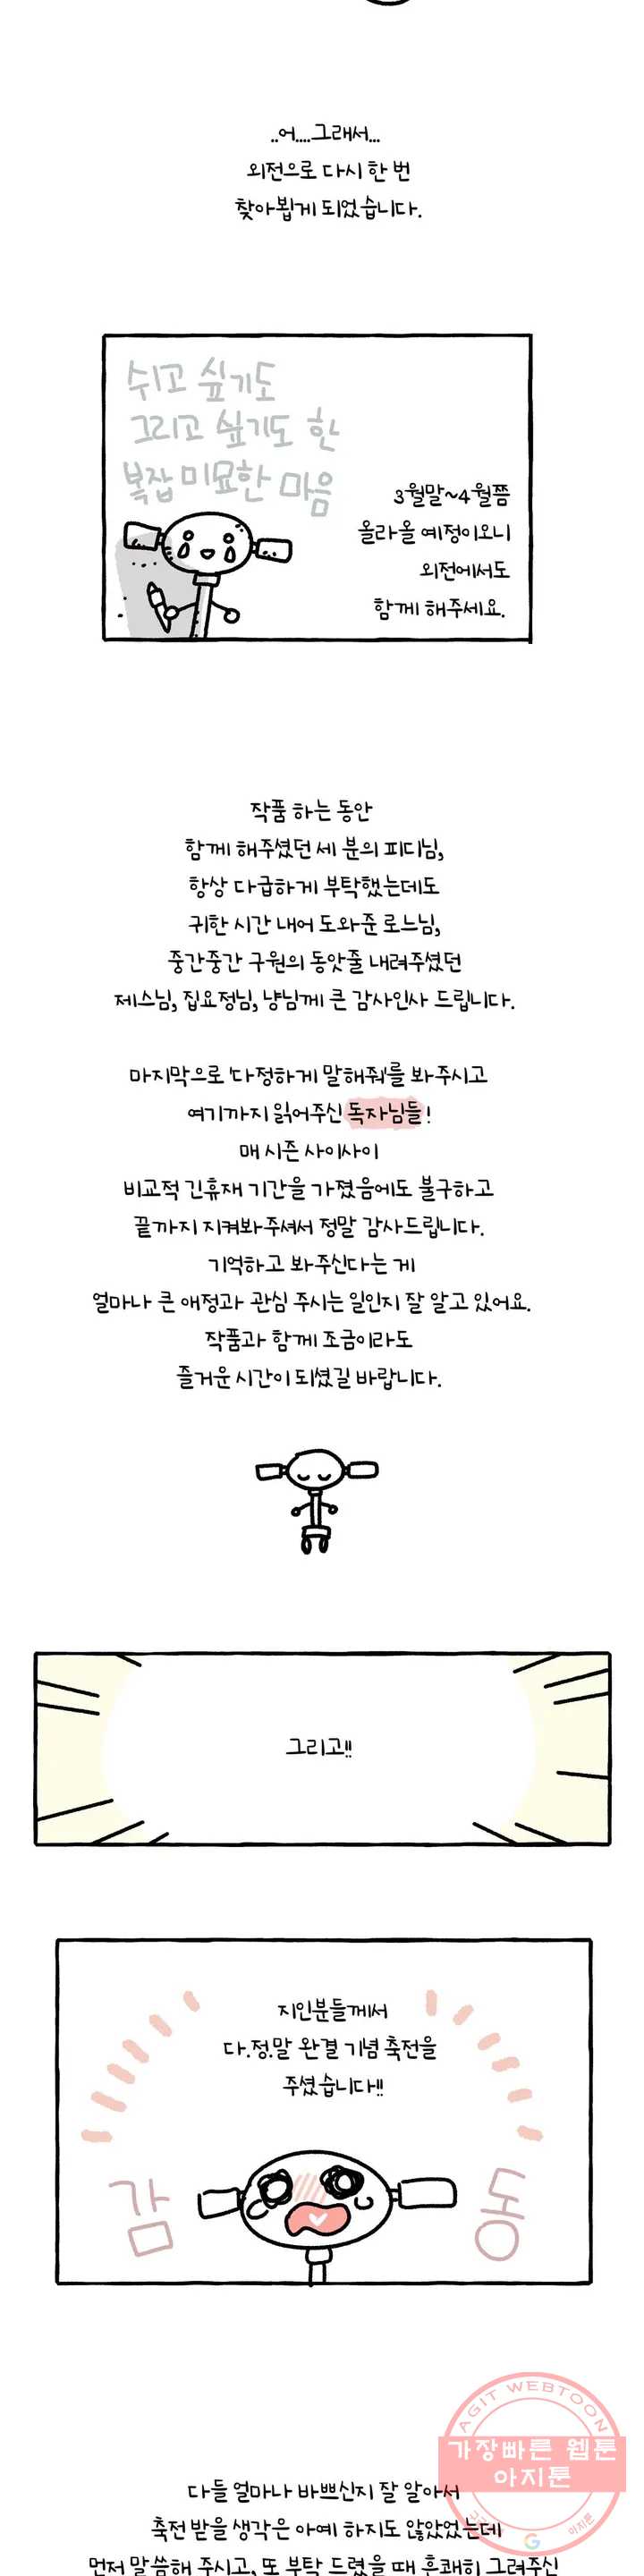 ..어....그래서...
외전으로 다시 한 번
찾아뵙게 되었습니다.
쉬고 싶기도
그리고 싶기도 한
복잡 미묘한 마음
3월말~4월쯤
올라올 예정이오니
외전에서도
함께 해주세요.
작품 하는 동안
함께 해주셨던 세 분의 피디님,
항상 다급하게 부탁했는데도
귀한 시간 내어 도와준 로느님,
중간중간 구원의 동앗줄 내려주셨던
제스님, 집요정님, 냥님께 큰 감사인사 드립니다.
마지막으로 '다정하게 말해줘'를 봐주시고
여기까지 읽어주신 독자님들!
매 시즌 사이사이
비교적 긴휴재 기간을 가졌음에도 불구하고
끝까지 지켜봐주셔서 정말 감사드립니다.
기억하고 봐주신다는 게
얼마나 큰 애정과 관심 주시는 일인지 잘 알고 있어요.
작품과 함께 조금이라도
즐거운 시간이 되셨길 바랍니다.
그리고!!
지인분들께서
다.정.말 완결 기념 축전을
주셨습니다!!
감 동
AGIT WEBTOON
가장빠른 웹툰
아지툰
다들 얼마나 바쁘신지 잘 알아서
축전 받을 생각은 아예 하지도 않았었는데
아지툰
G
먼저 말씀해 주시고, 또 부탁 드렸을 때 흔쾌히 그려주신